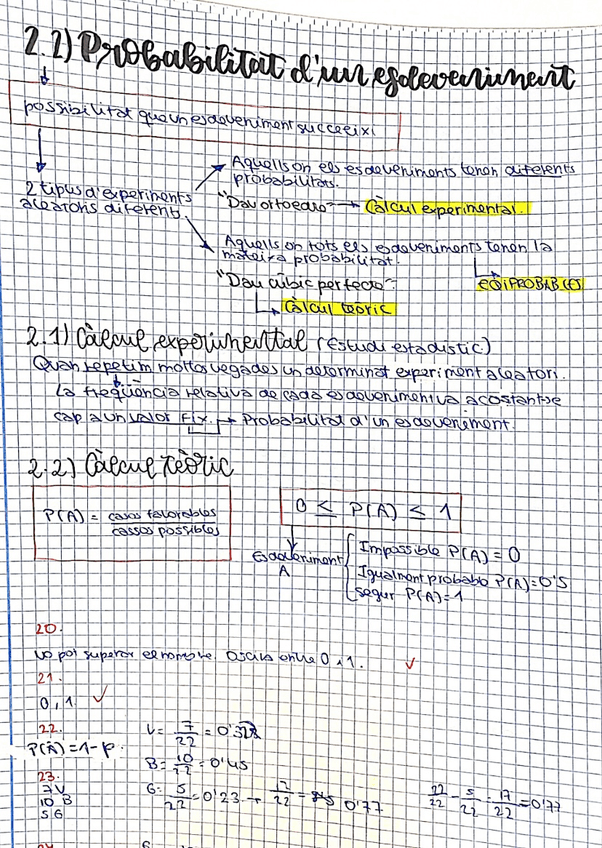 2.2) Probabilitat d'un esdeveniment
possibilitat que un esdeveniment succeeixi.
Aquells on els esdeveniments tenen diferents
probabilitats.
2 tipus d'experiments
aleatoris diferents.
"Dau ortoedre" → Càlcul experimental.
Aquells on tots els esdeveniments tenen la
mateixa probabilitat.
"Dau cúbic perfecte"
EQÜIPROBABLES
Càlcul teòric
2.1) Càlcul experimental (Estudi estadístic)
Quan repetim moltes vegades un determinat experiment aleatori.
La freqüència relativa de cada esdeveniment va acostant-se
cap a un valor FIX. → Probabilitat d'un esdeveniment.
2.2) Càlcul teòric
P(A) = casos favorables / cassos possibles
0 ≤ P(A) ≤ 1
Esdeveniment A
Impossible P(A) = 0
Igualment probable P(A)=0'5
segur P(A)=1
20.
No pot superar el nombre. Oscila entre 0 i 1. ✓
21.
0, 1 ✓
22.
P(Ā) = 1-p.
23.
7V
10 B
5 G
V= 7/22 = 0'32
B= 10/22 = 0'45
G: 5/22 = 0'23 → 0'77
22/22 - 5/22 = 17/22 = 0'77